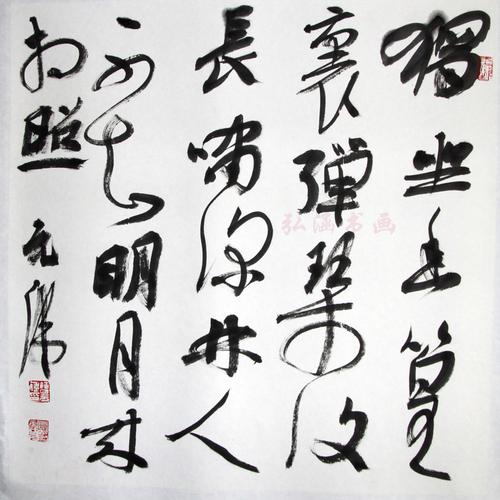 獨坐幽篁
裏彈琴復
長嘯深林人
不知明月来
相照 元
弘涵书画